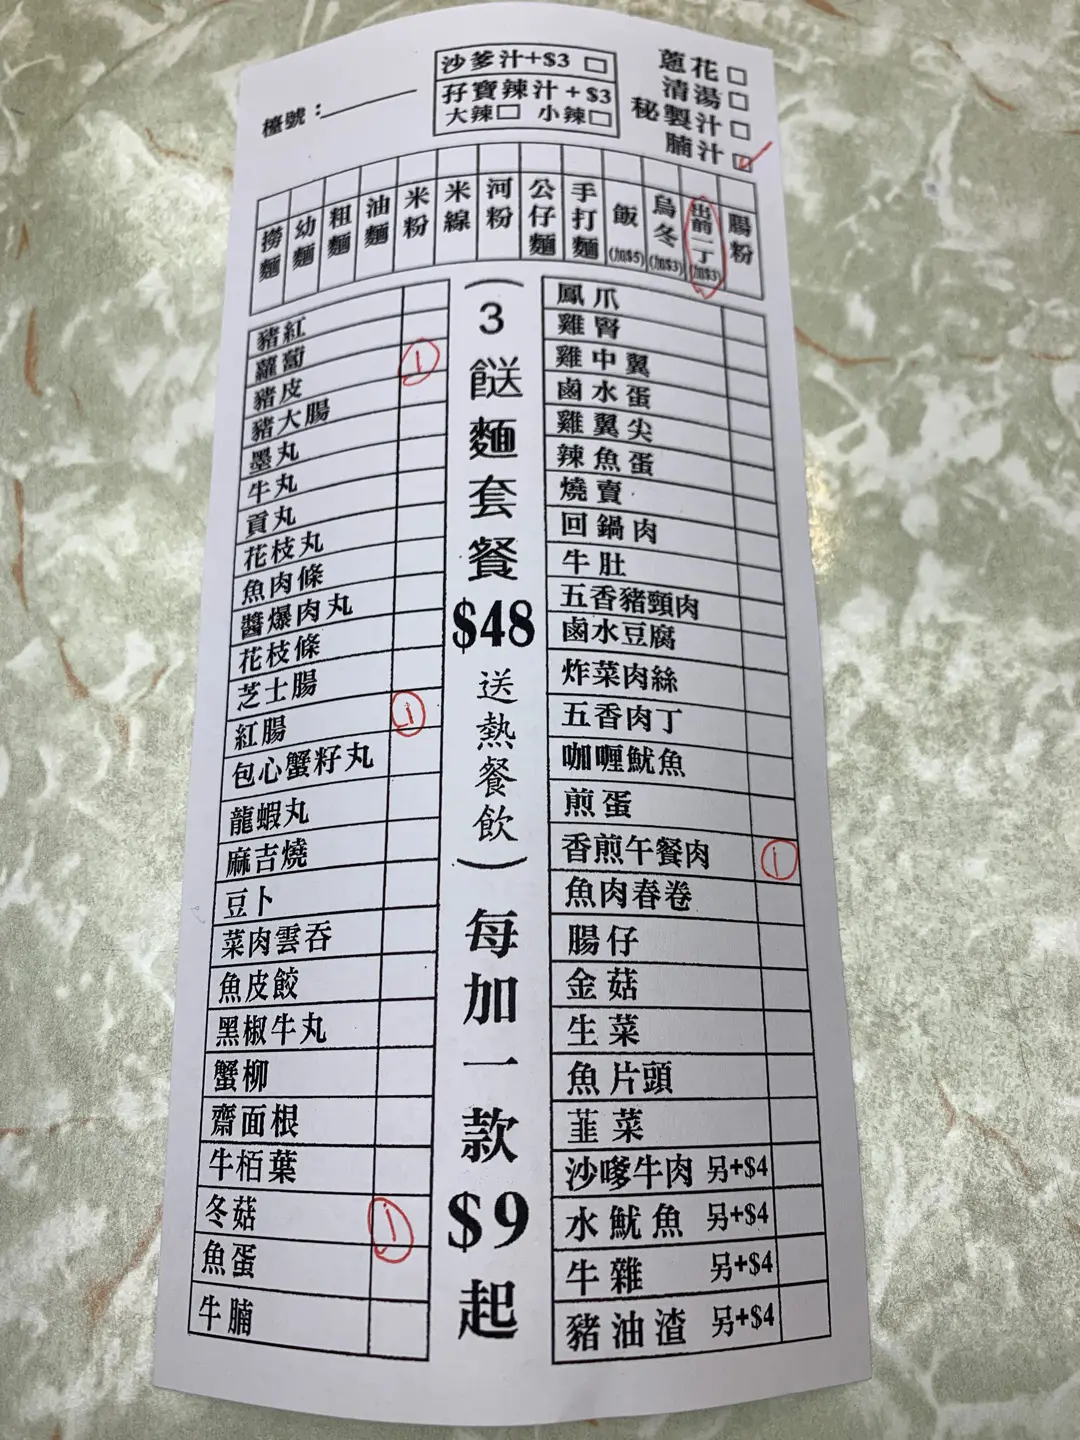 檯號：
沙爹汁+$3 □
孖寶辣汁+$3
大辣□ 小辣□
蔥花□
清湯□
秘製汁□
腩汁□
撈麵
幼麵
粗麵
油麵
米粉
米線
河粉
公仔麵
手打麵
飯(加$5)
烏冬(加$3)
出前一丁(加$3)
腸粉
豬紅
蘿蔔 1
豬皮
豬大腸
墨丸
牛丸
貢丸
花枝丸
魚肉條
醬爆肉丸
花枝條
芝士腸
紅腸 1
包心蟹籽丸
龍蝦丸
麻吉燒
豆卜
菜肉雲吞
魚皮餃
黑椒牛丸
蟹柳
齋面根
牛栢葉
冬菇 1
魚蛋
牛腩
(3餸麵套餐$48送熱餐飲)每加一款$9起
鳳爪
雞腎
雞中翼
鹵水蛋
雞翼尖
辣魚蛋
燒賣
回鍋肉
牛肚
五香豬頸肉
鹵水豆腐
炸菜肉絲
五香肉丁
咖喱魷魚
煎蛋
香煎午餐肉 1
魚肉春卷
腸仔
金菇
生菜
魚片頭
韮菜
沙嗲牛肉 另+$4
水魷魚 另+$4
牛雜 另+$4
豬油渣 另+$4